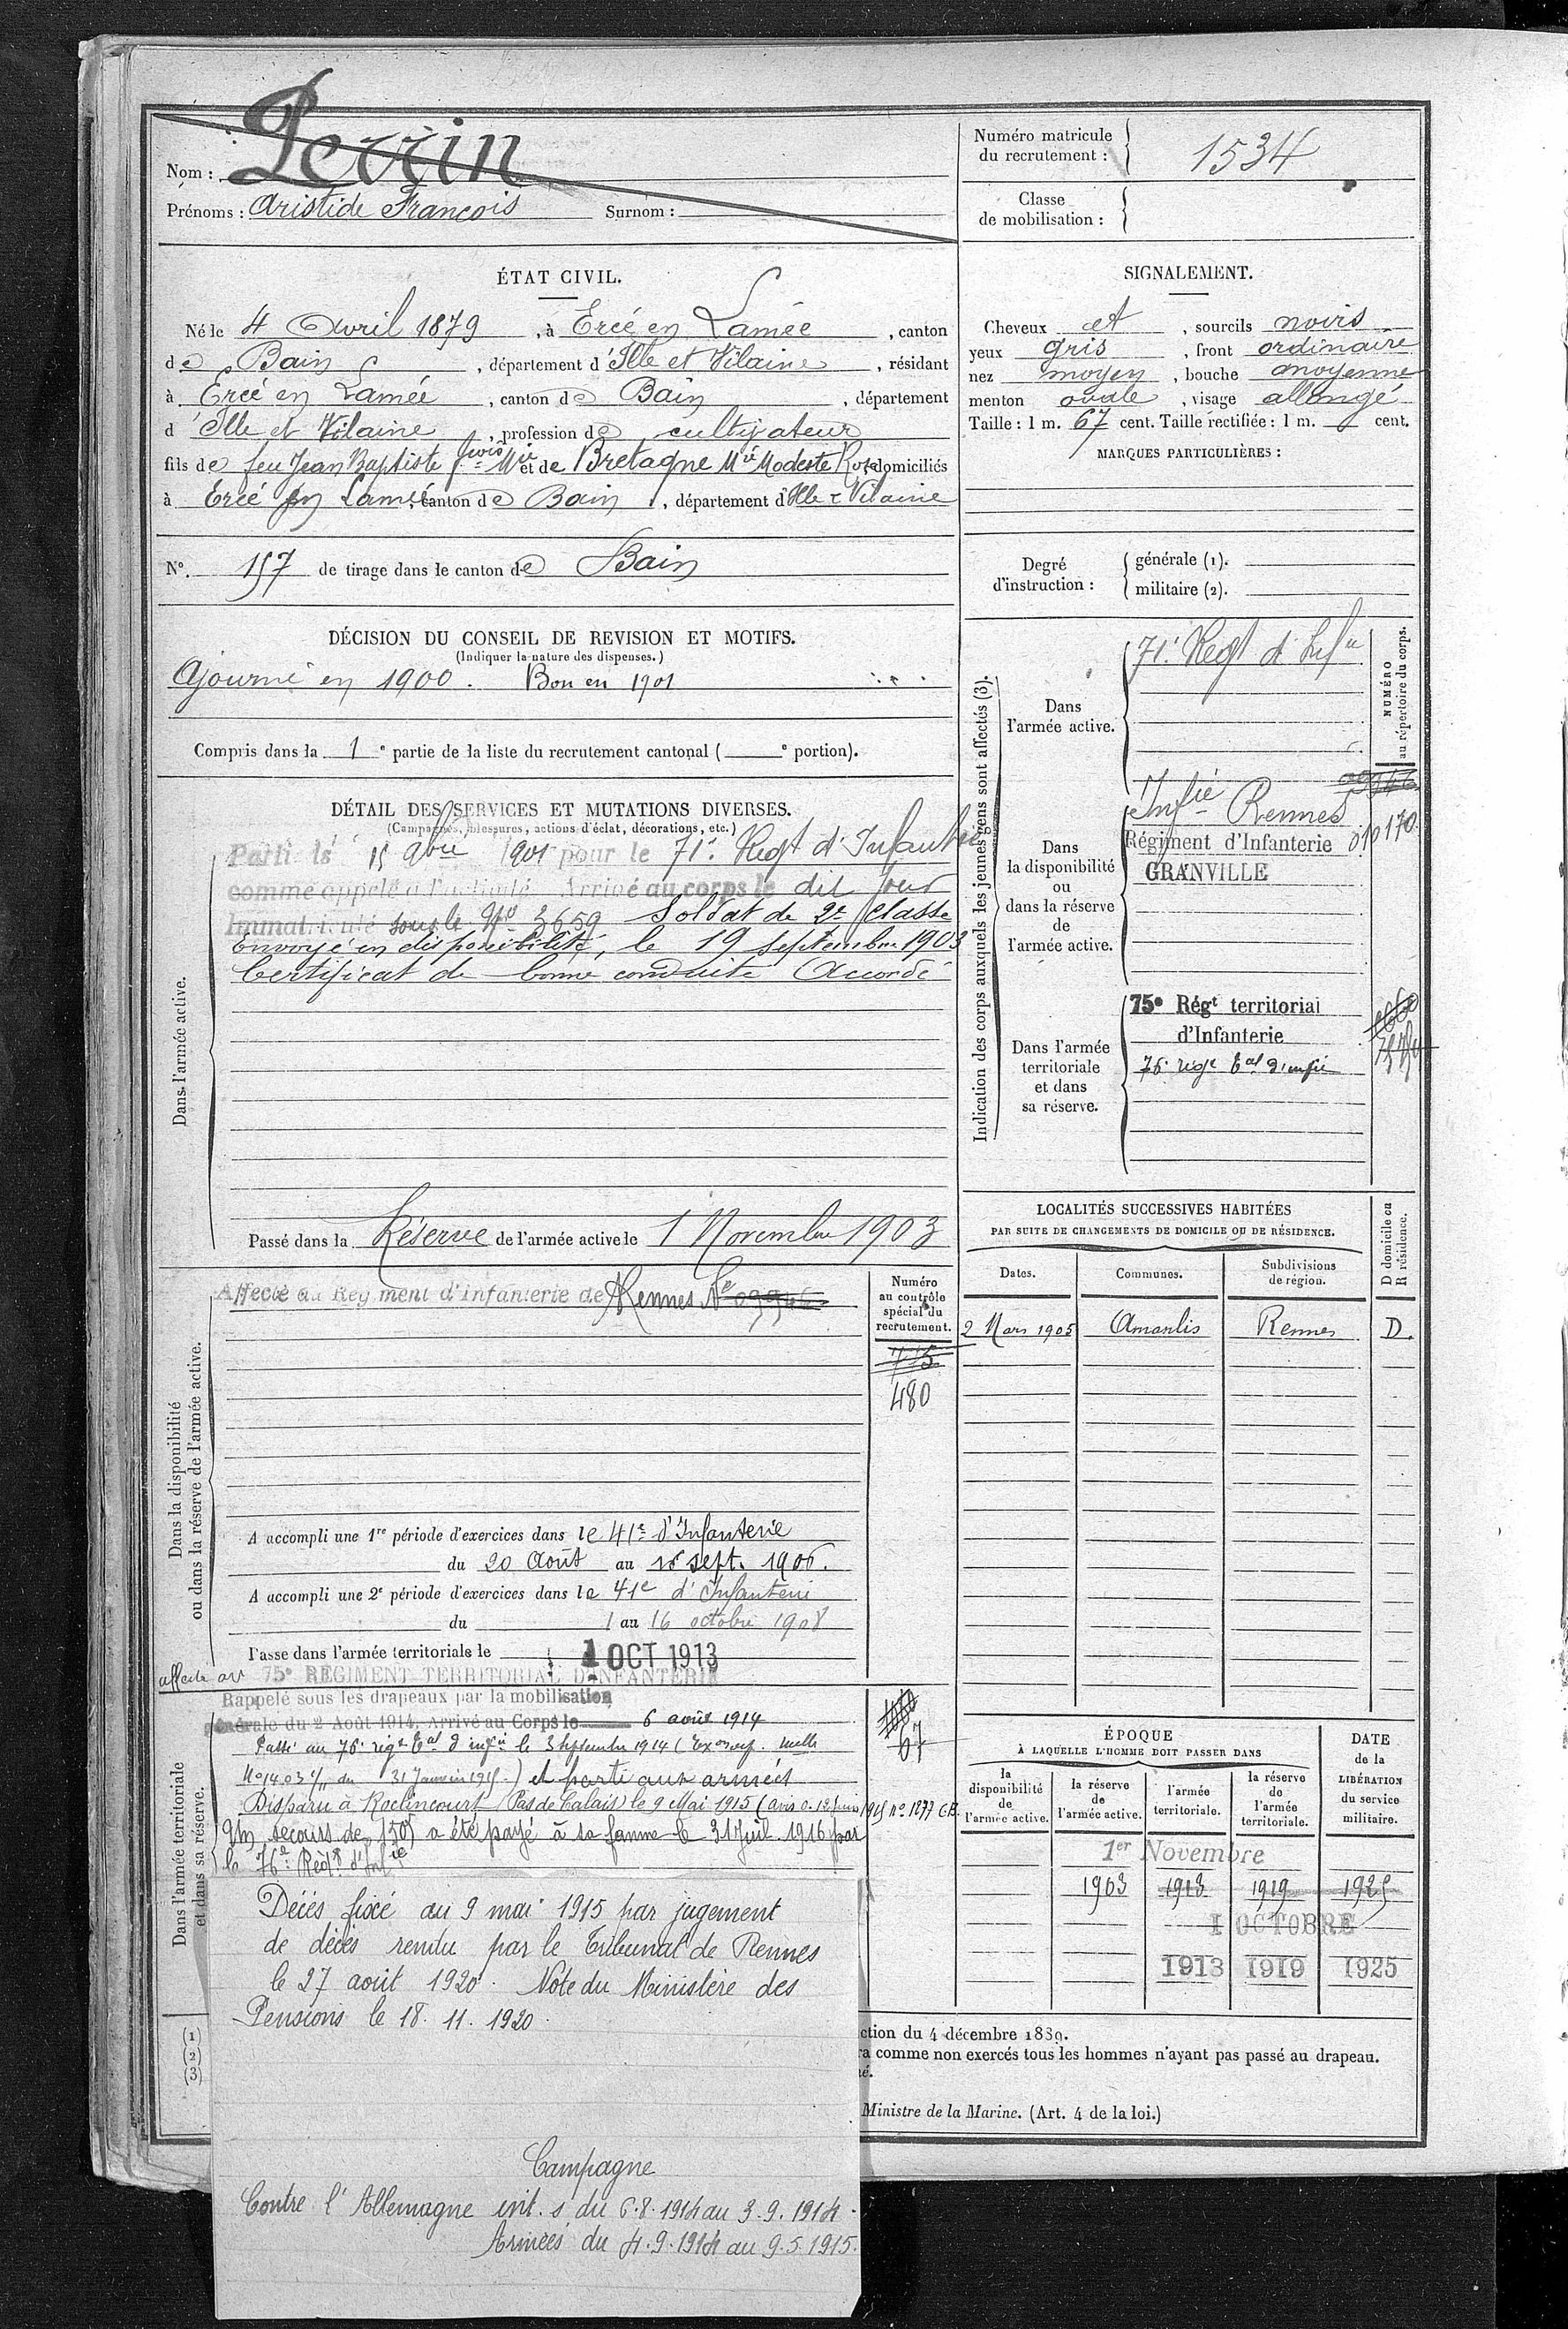 Nom : Perrin
Prénoms : Aristide François Surnom :
Numéro matricule
du recrutement : 1534
Classe
de mobilisation :
ÉTAT CIVIL.
Né le 4 Avril 1879, à Ercé en Lamée, canton
de Bain, département d'Ille et Vilaine, résidant
à Ercé en Lamée, canton de Bain, département
d'Ille et Vilaine, profession de cultivateur
fils de feu Jean Baptiste fçois Mie et de Bretagne Mie Modeste Rose domiciliés
à Ercé en Lamée, canton de Bain, département d'Ille & Vilaine
N° 157 de tirage dans le canton de Bain
DÉCISION DU CONSEIL DE REVISION ET MOTIFS.
(Indiquer la nature des dispenses.)
Ajourné en 1900. Bon en 1901
Compris dans la 1e partie de la liste du recrutement cantonal ( e portion).
SIGNALEMENT.
Cheveux et, sourcils noirs
yeux gris, front ordinaire
nez moyen, bouche moyenne
menton ovale, visage allongé
Taille : 1 m. 67 cent. Taille rectifiée : 1 m. cent.
MARQUES PARTICULIÈRES :
Degré
d'instruction :
générale (1).
militaire (2).
DÉTAIL DES SERVICES ET MUTATIONS DIVERSES.
(Campagnes, blessures, actions d'éclat, décorations, etc.)
Dans l'armée active.
Parti le 15 9bre 1901 pour le 71e Regt d'Infanterie
comme appelé à l'activité Arrivé au corps le dit jour
Immatriculé sous le No 3659 Soldat de 2e classe
Envoyé en disponibilité, le 19 septembre 1903
Certificat de bonne conduite Accordé
Passé dans la Réserve de l'armée active le 1 Novembre 1903
Indication des corps auxquels les jeunes gens sont affectés (3).
NUMÉRO
au répertoire du corps.
Dans
l'armée active.
71e Regt d'Infie
Dans
la disponibilité
ou
dans la réserve
de
l'armée active.
Infie Rennes
Régiment d'Infanterie 010170
GRANVILLE
Dans l'armée
territoriale
et dans
sa réserve.
75e Régt territorial
d'Infanterie
76e régt tal d'infie
LOCALITÉS SUCCESSIVES HABITÉES
PAR SUITE DE CHANGEMENTS DE DOMICILE OU DE RÉSIDENCE.
Dates. Communes. Subdivisions
de région.
D domicile ou
R résidence.
2 Mars 1905 Amanlis Rennes D.
Dans la disponibilité
ou dans la réserve de l'armée active.
Affecté au Régiment d'Infanterie de Rennes No
Numéro
au contrôle
spécial du
recrutement.
715
480
A accompli une 1re période d'exercices dans le 41e d'Infanterie
du 20 Août au 16 sept. 1906.
A accompli une 2e période d'exercices dans le 41e d'Infanterie
du 1 au 16 octobre 1908
Passé dans l'armée territoriale le 1 OCT 1913
affecté au 75e RÉGIMENT TERRITORIAL D'INFANTERIE
Dans l'armée territoriale
et dans sa réserve.
Rappelé sous les drapeaux par la mobilisation
générale du 2 Août 1914. Arrivé au Corps le 6 août 1914
67
Passé au 76e régt tal d'infie le 3 septembre 1914
No 1403 du 31 Janvier 1915) et parti aux armées
Disparu à Roclincourt (Pas de Calais) le 9 Mai 1915 (avis o. 12 juin 1915 no 1277 C.B.
Un secours de 150f a été payé à sa femme le 31 Juil. 1916 par
le 76e Régt d'Infie
Décès fixé au 9 mai 1915 par jugement
de décès rendu par le Tribunal de Rennes
le 27 août 1920. Note du Ministère des
Pensions le 18.11.1920.
Campagne
Contre l'Allemagne int. s. du 6.8.1914 au 3.9.1914.
Armées du 4.9.1914 au 9.5.1915.
ÉPOQUE
À LAQUELLE L'HOMME DOIT PASSER DANS
la
disponibilité
de
l'armée active.
la réserve
de
l'armée active.
l'armée
territoriale.
la réserve
de
l'armée
territoriale.
DATE
de la
LIBÉRATION
du service
militaire.
1er Novembre
1903 1913 1919 1925
1 OCTOBRE
1913 1919 1925
(1)
(2)
(3)
ction du 4 décembre 1889.
ra comme non exercés tous les hommes n'ayant pas passé au drapeau.
né.
Ministre de la Marine. (Art. 4 de la loi.)